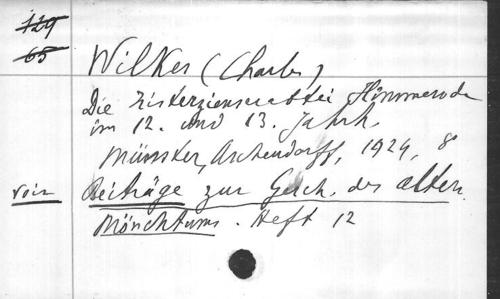 129
65
Wilkes (Charles)
Die Zisterzienserabtei Himmerode
im 12. und 13. Jahrh.
Münster, Aschendorff, 1924, 8
voir Beiträge zur Gesch. des alten
Mönchtums. Heft 12